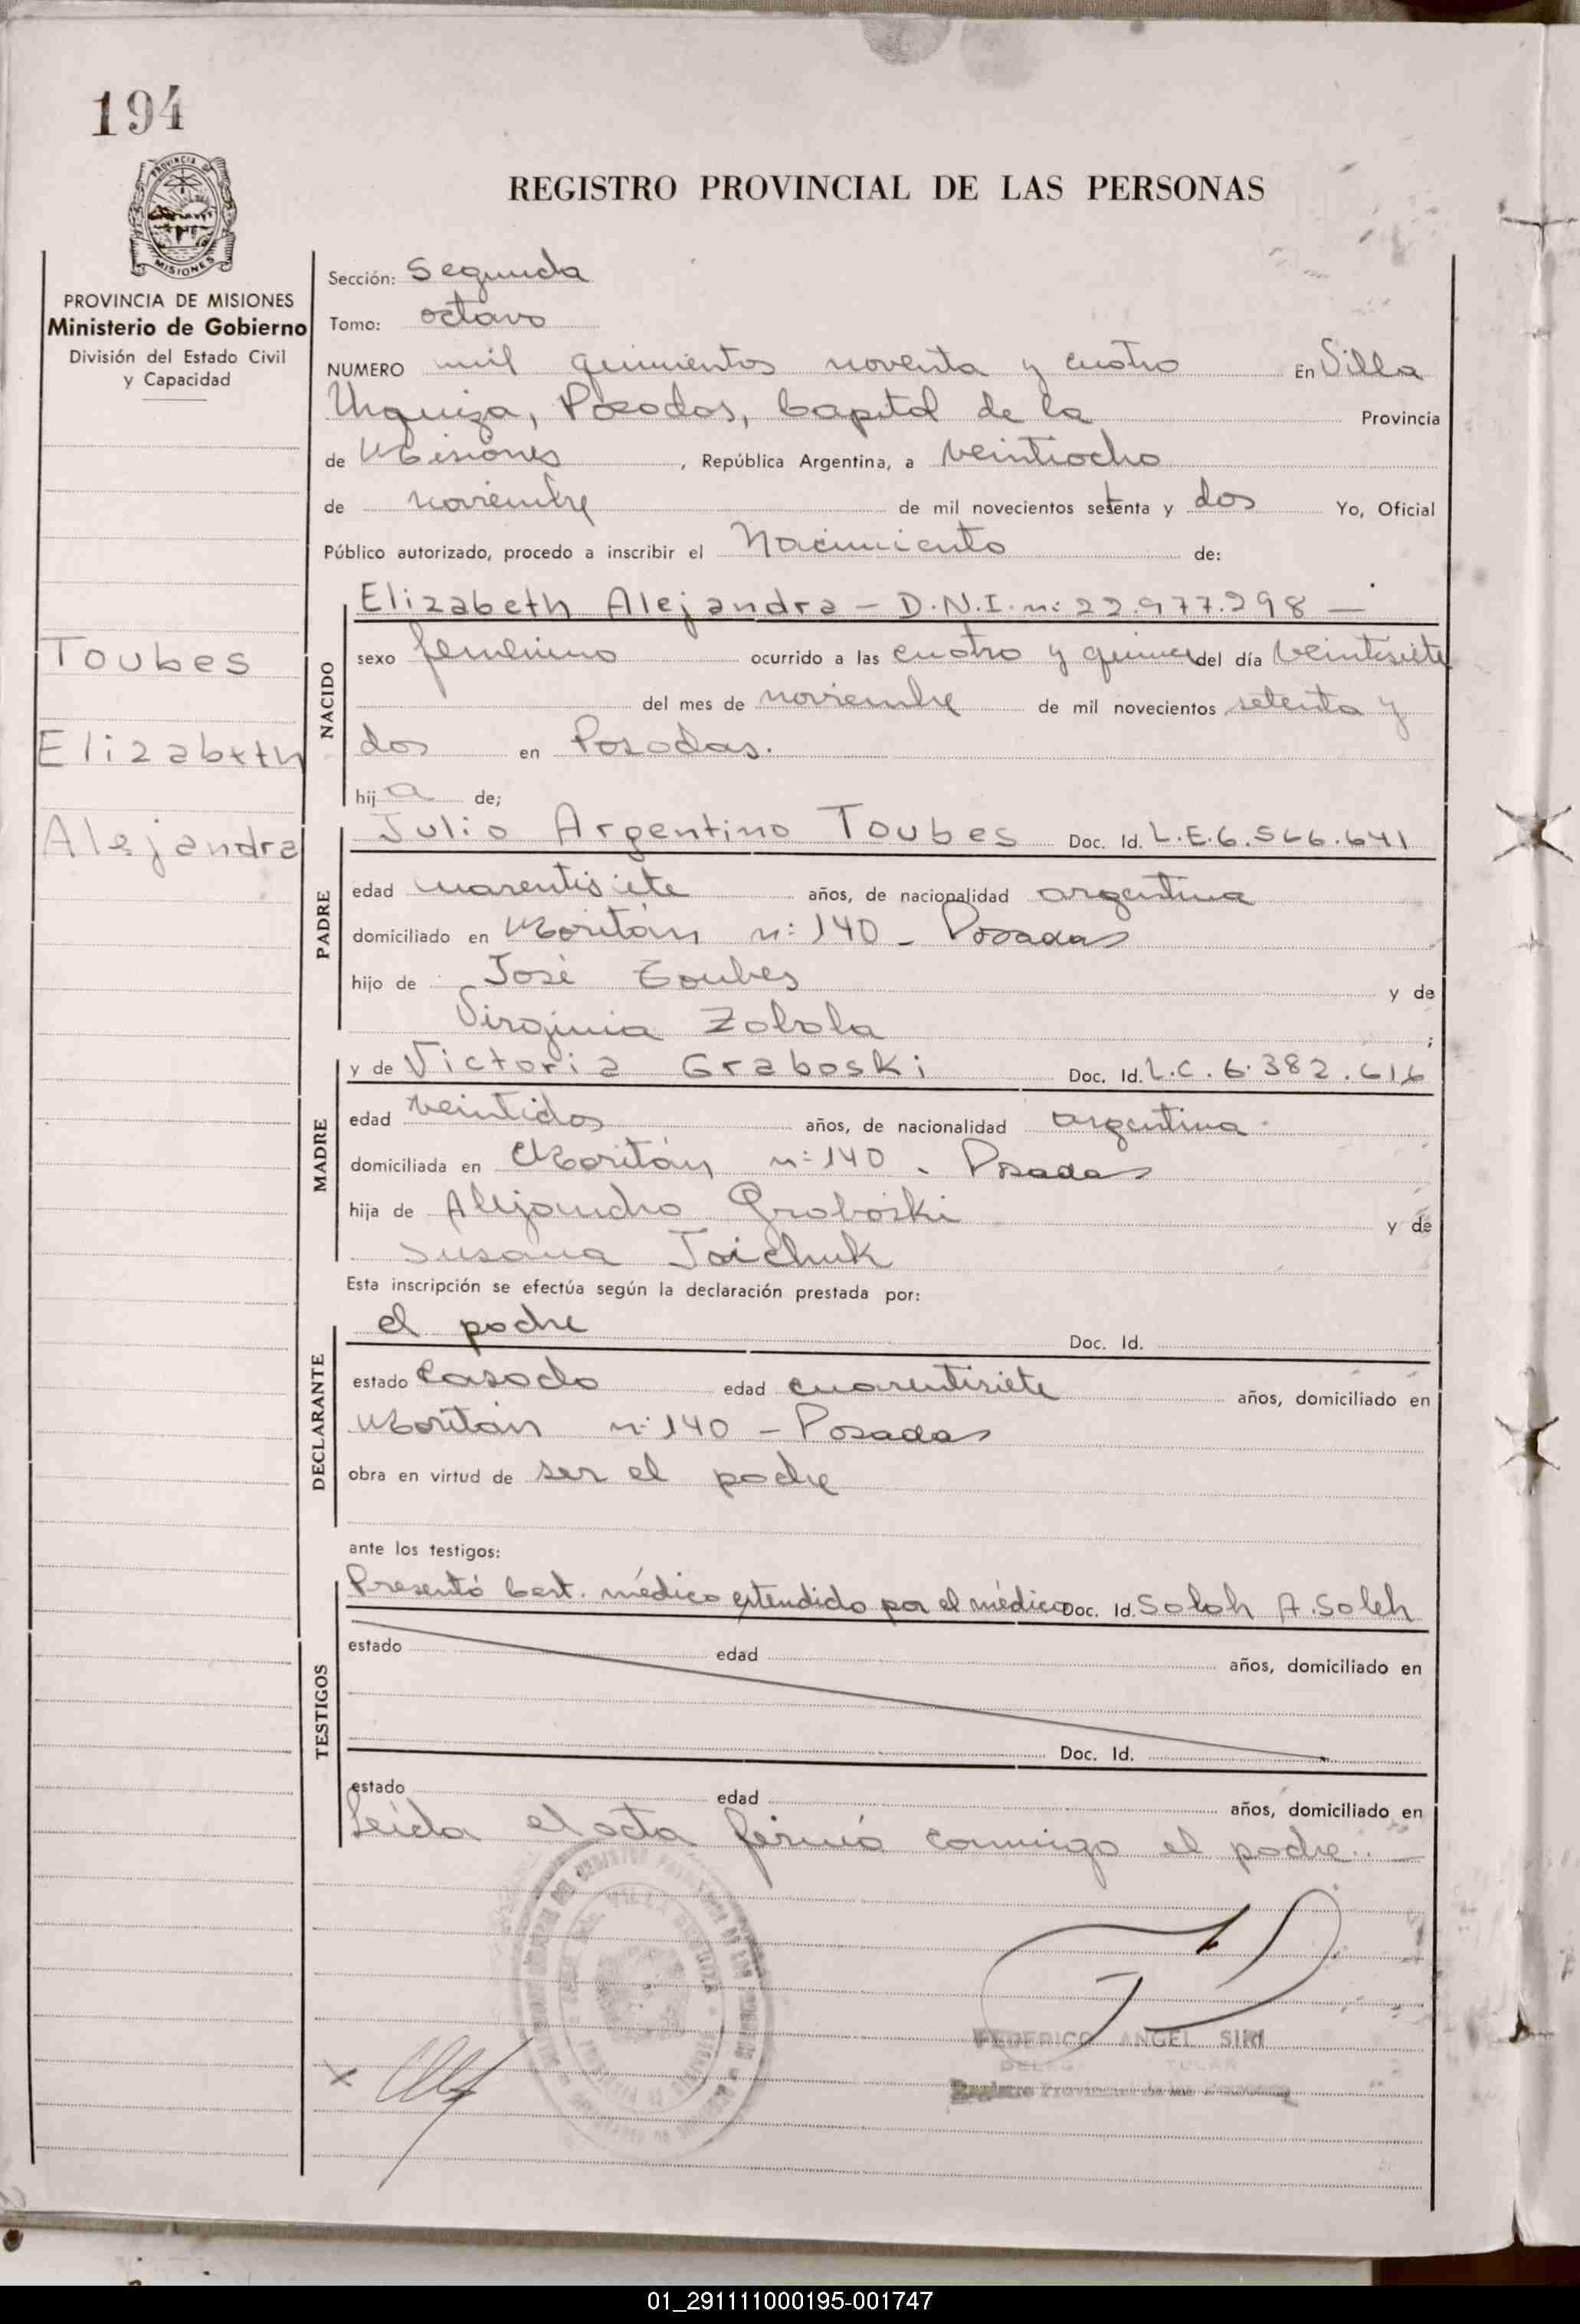 194
PROVINCIA DE
MISIONES
REGISTRO PROVINCIAL DE LAS PERSONAS
PROVINCIA DE MISIONES
Ministerio de Gobierno
División del Estado Civil
y Capacidad
Toubes
Elizabeth
Alejandra
Sección: Segunda
Tomo: octavo
NUMERO mil quinientos noventa y cuatro En Villa
Urquiza, Posadas, Capital de la Provincia
de Misiones, República Argentina, a veintiocho
de noviembre de mil novecientos setenta y dos Yo, Oficial
Público autorizado, procedo a inscribir el Nacimiento de:
NACIDO
Elizabeth Alejandra - D.N.I. n: 22.977.298 -
sexo femenino ocurrido a las cuatro y quince del día veintisiete
del mes de noviembre de mil novecientos setenta y
dos en Posadas.
hija de;
PADRE
Julio Argentino Toubes Doc. Id. L.E. 6.566.641
edad cuarentisiete años, de nacionalidad argentina
domiciliado en Moritán n: 140 - Posadas
hijo de José Toubes y de
Virginia Zobola;
MADRE
y de Victoria Graboski Doc. Id. L.C. 6.382.616
edad veintidos años, de nacionalidad argentina
domiciliada en Moritán n: 140 - Posadas
hija de Alejandro Graboski y de
Susana Jaichuk
Esta inscripción se efectúa según la declaración prestada por:
DECLARANTE
el padre Doc. Id.
estado casado edad cuarentisiete años, domiciliado en
Moritán n: 140 - Posadas
obra en virtud de ser el padre
ante los testigos:
TESTIGOS
Presentó Cert. médico extendido por el médico Doc. Id. Saleh A. Saleh
estado edad años, domiciliado en
Doc. Id.
estado edad años, domiciliado en
Leída el acta firmó conmigo el padre. -
FEDERICO ANGEL SIRI
Registro Provincial de las Personas
01_291111000195-001747